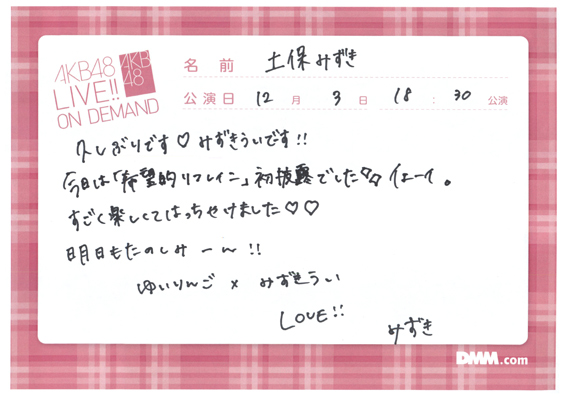 AKB48
LIVE!!
ON DEMAND
AKB
48
名前 土保みずき
公演日 12月 3日 18:30 公演
久しぶりです♡みずきういです!!
今日は「希望的リフレイン」初披露でした いぇーい。
すごく楽しくてはっちゃけました♡♡
明日もたのしみーん!!
ゆいりんご × みずきうい
LOVE!!
みずき
DMM.com